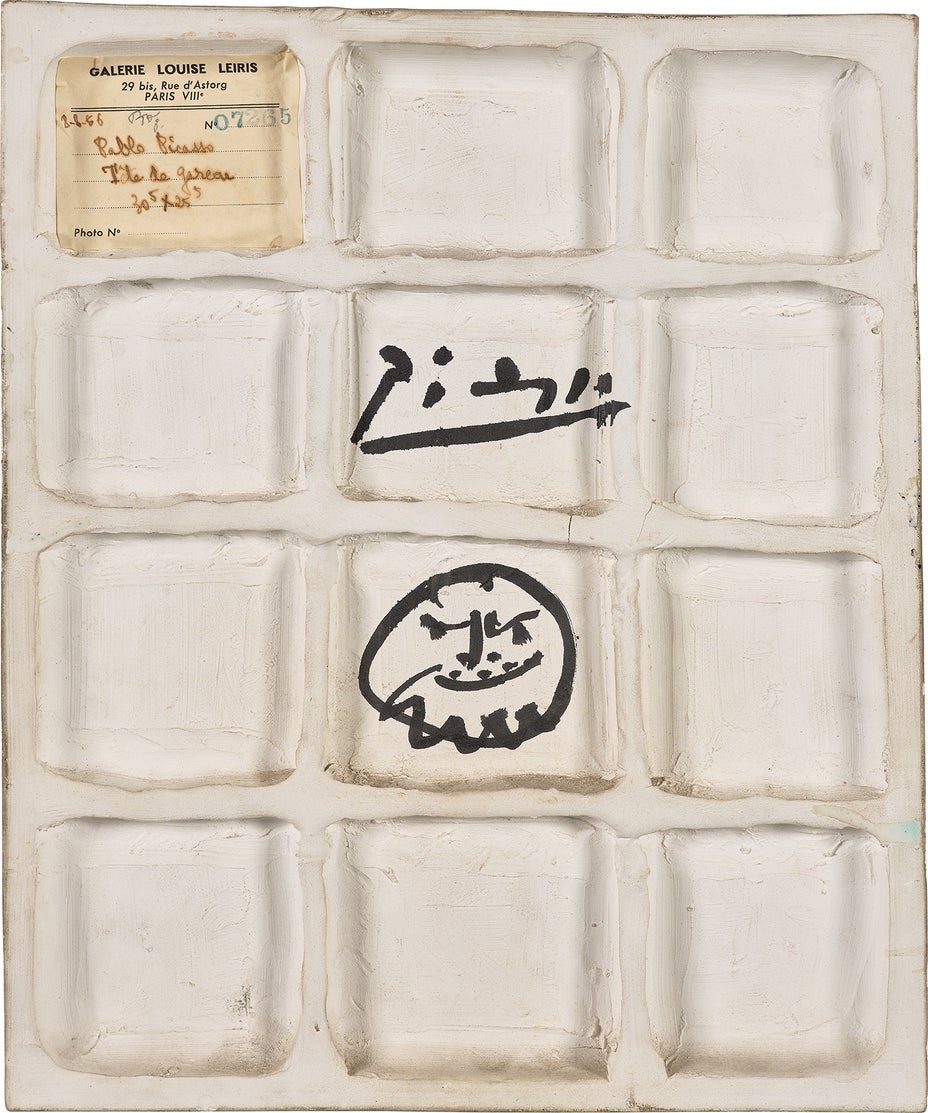 GALERIE LOUISE LEIRIS
29 bis, Rue d'Astorg
PARIS VIIIe
Nº 07265
Pablo Picasso
Tête de garçon
30⁵ x 25⁵
Photo Nº
Picasso